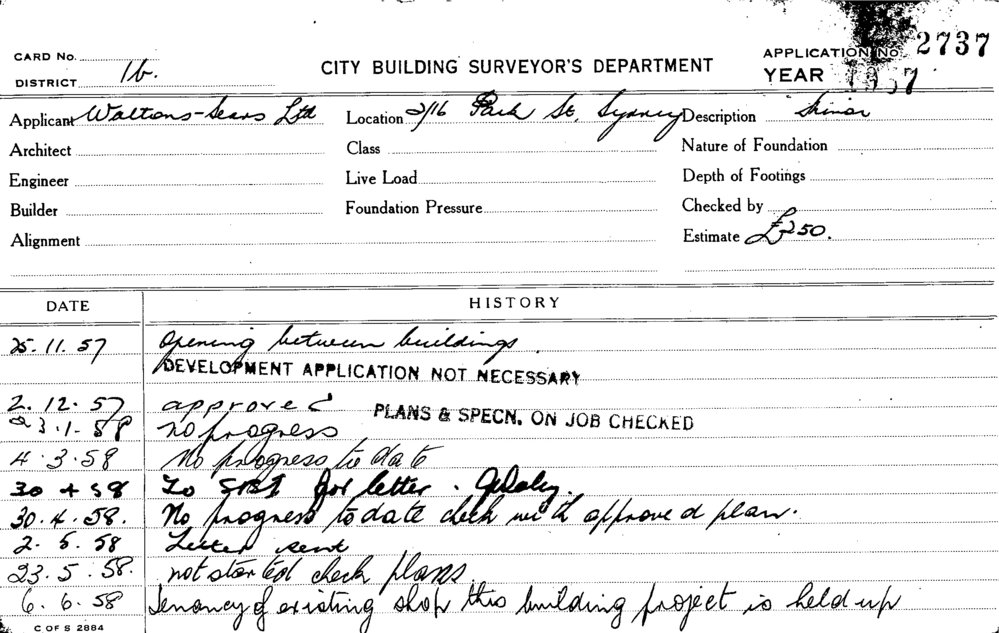 CARD No.
DISTRICT 1b.
CITY BUILDING SURVEYOR'S DEPARTMENT
APPLICATION No. 2737
YEAR 1957
Applicant Waltons-Sears Ltd
Location 2/16 Park St, Sydney
Description Minor
Architect
Class
Nature of Foundation
Engineer
Live Load
Depth of Footings
Builder
Foundation Pressure
Checked by
Alignment
Estimate £250.
DATE
HISTORY
25.11.57 Opening between buildings.
DEVELOPMENT APPLICATION NOT NECESSARY
2.12.57 approved
PLANS & SPECN. ON JOB CHECKED
23.1.58 no progress
4.3.58 No progress to date
30 4 58 To for letter.
30.4.58. No progress to date check with approved plan.
2.5.58 Letter sent
23.5.58. not started check plans
6.6.58 Tenancy of existing shop this building project is held up
C OF S 2884